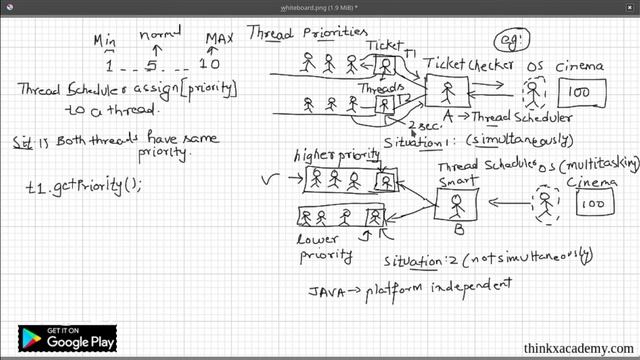 whiteboard.png (1.9 MiB) *
Min normal MAX
1 _ _ 5 _ _ _ 10
Thread Scheduler assign [priority]
to a thread.
Sit:1) Both threads have same
priority.
t1.getPriority();
Thread Priorities
eg:
Ticket
T1
Threads
2 sec.
Ticket Checker OS Cinema
100
A → Thread Scheduler
Situation 1: (simultaneously)
higher priority
Thread Scheduler OS (multitasking)
Smart
Cinema
100
B
lower
priority
Situation:2 (not simultaneously)
JAVA → platform independent
GET IT ON
Google Play
thinkxacademy.com